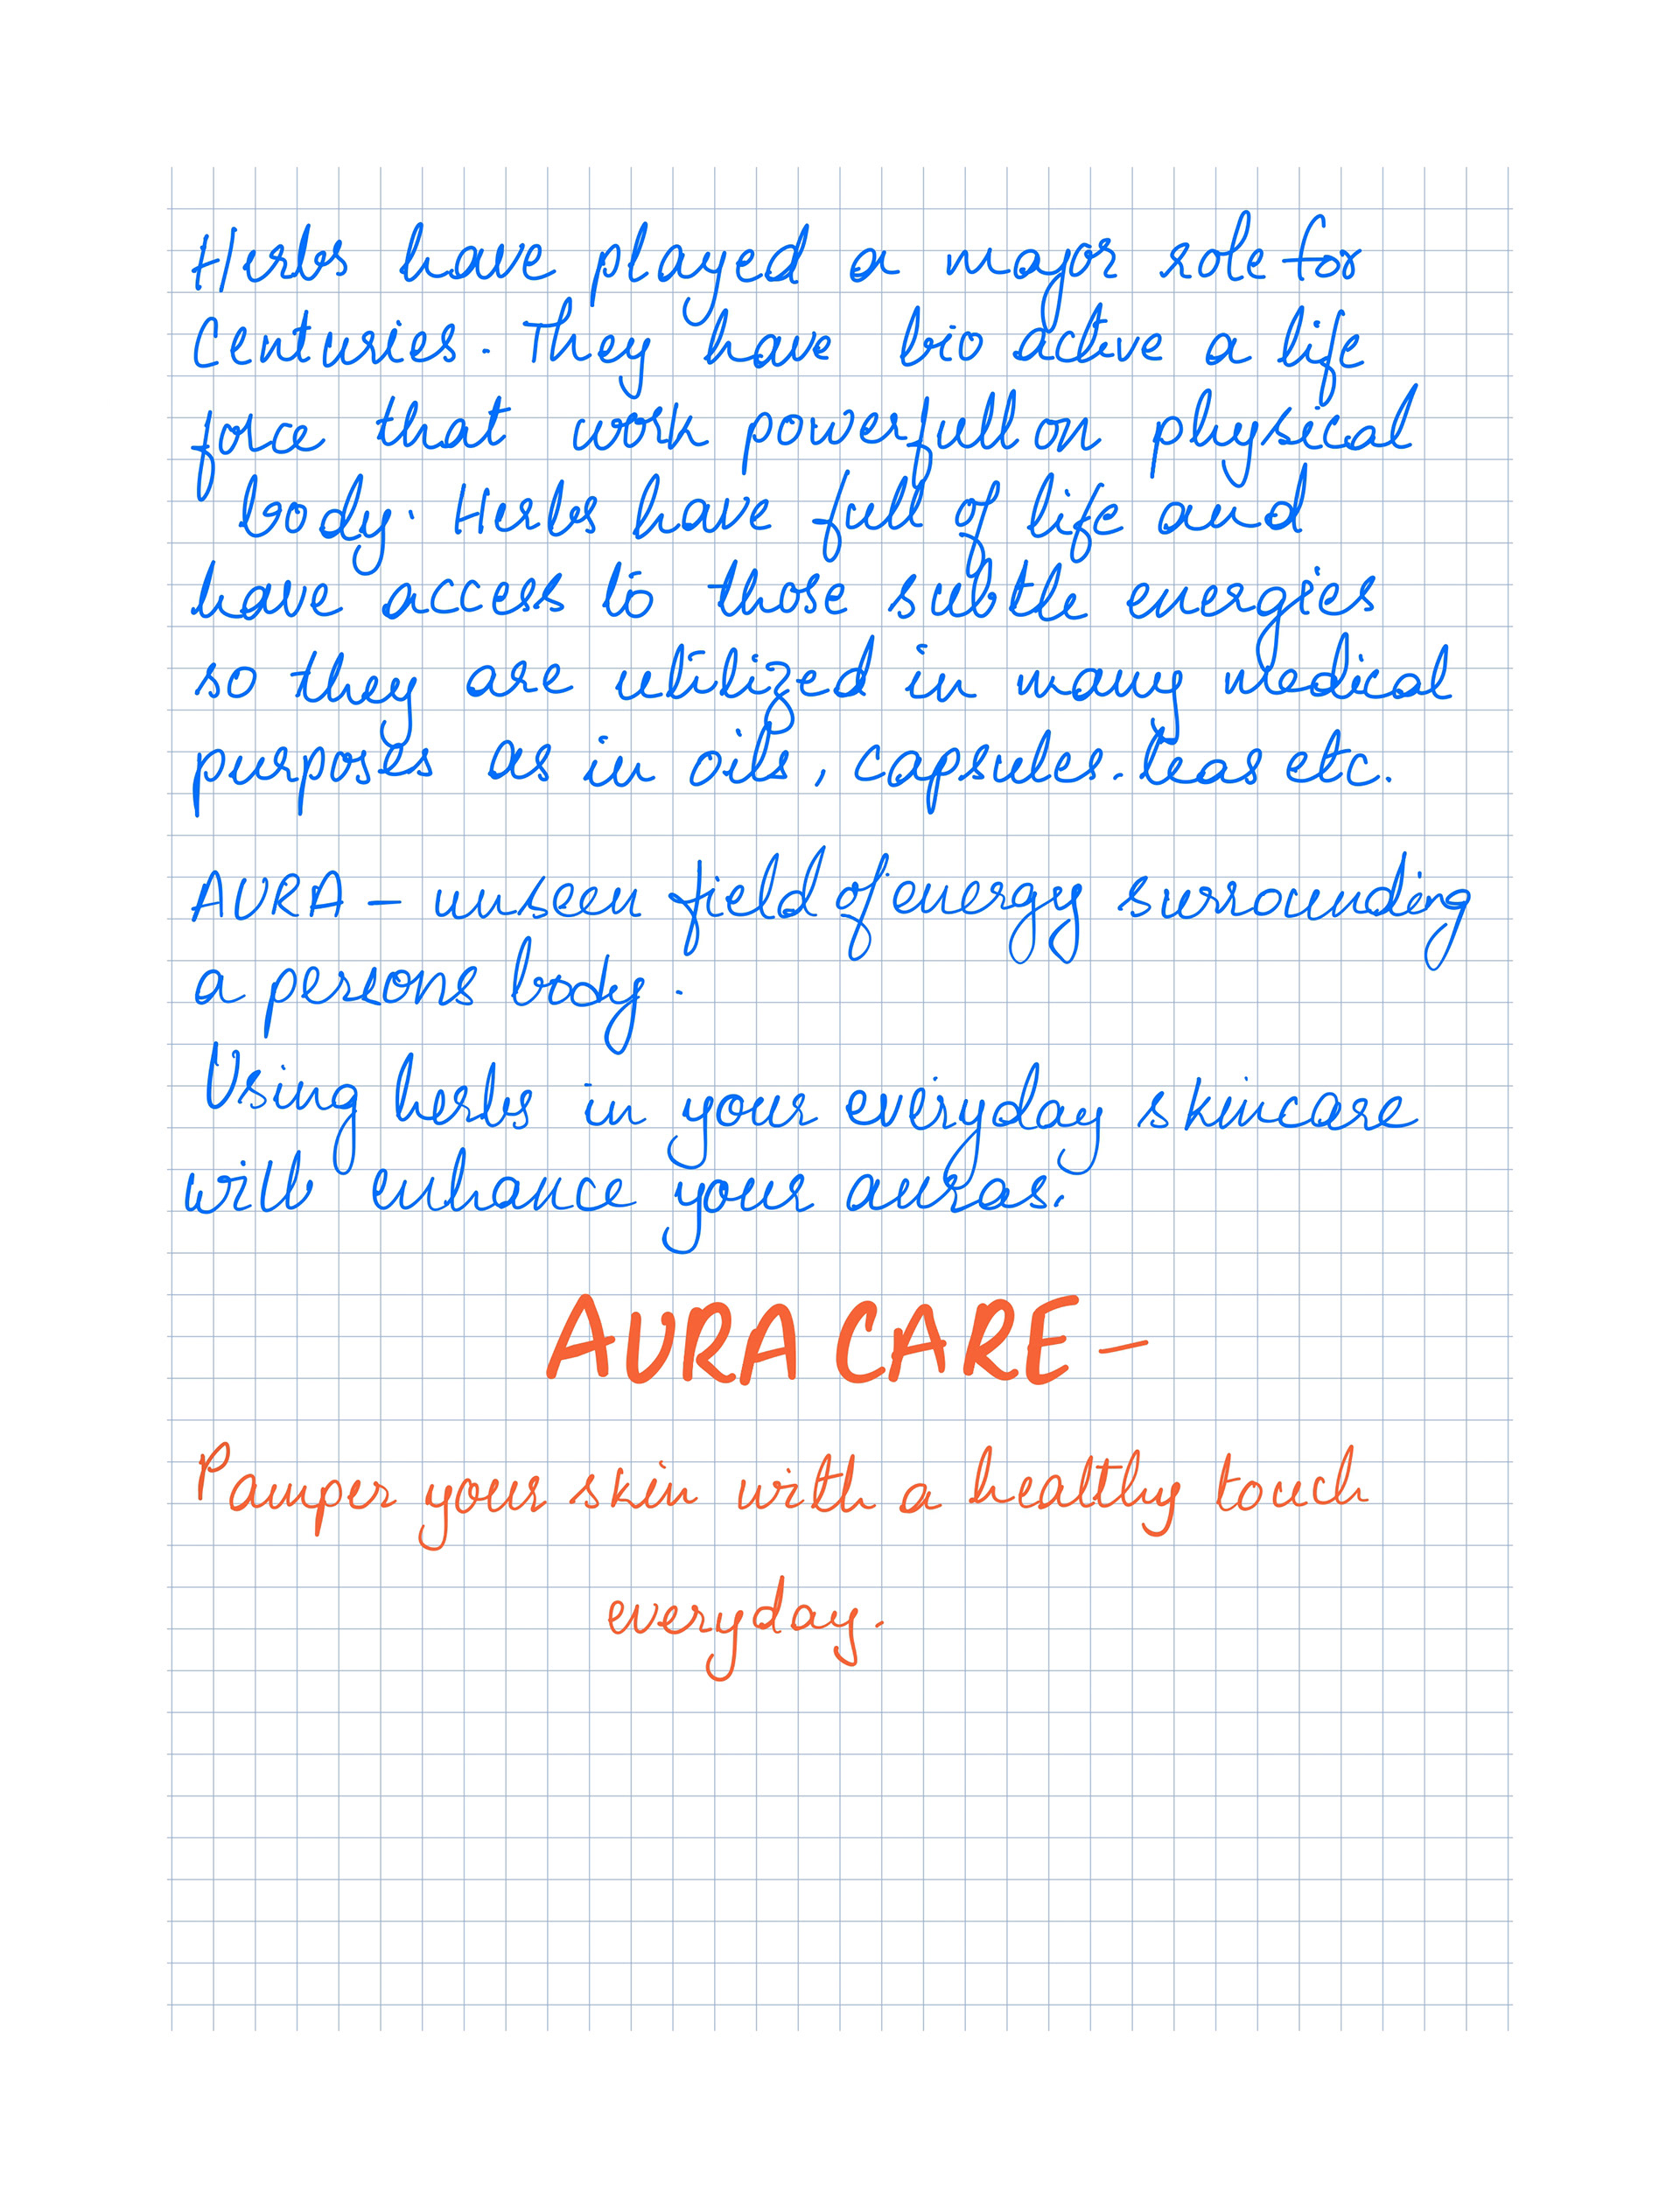 Herbs have played a major role for
Centuries. They have bio active a life
force that work powerfull on physical
body. Herbs have full of life and
have access to those subtle energies
so they are utilized in many medical
purposes as in oils, capsules. teas etc.
AURA - unseen field of energy surrounding
a persons body.
Using herbs in your everyday skincare
will enhance your auras.
AURA CARE -
Pamper your skin with a healthy touch
everyday.